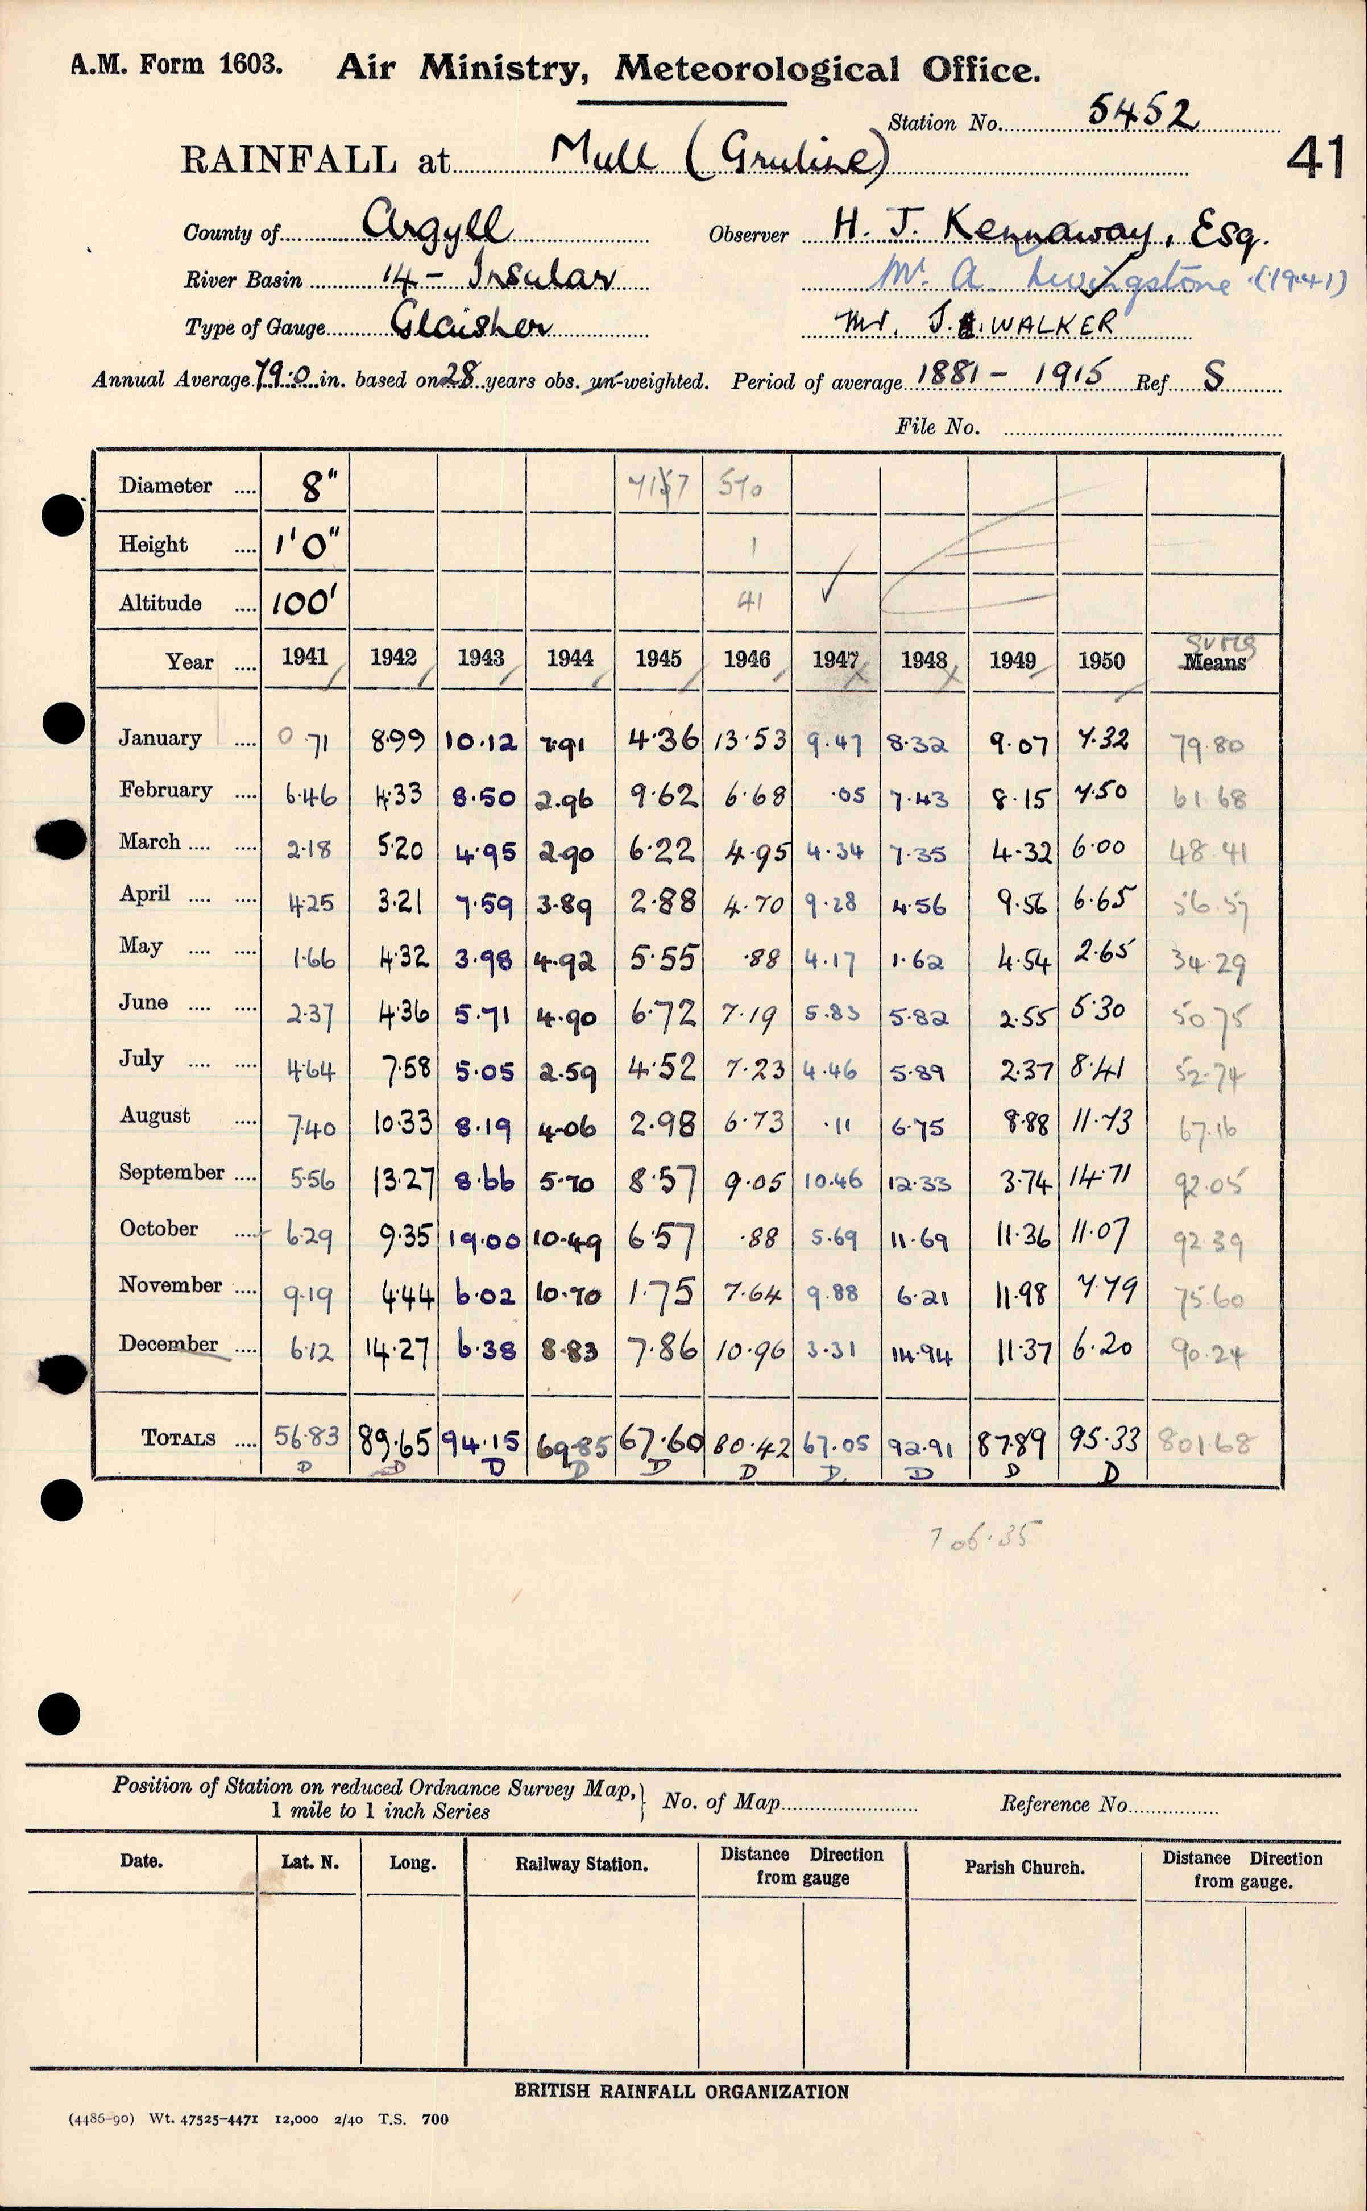 A.M. Form 1603. Air Ministry, Meteorological Office.
Station No. 5452
RAINFALL at Mull (Gruline) 41
County of Argyll Observer H. J. Kennaway, Esq.
River Basin 14 - Insular Mr. A. Livingstone (1941)
Type of Gauge Glaisher Mr. J. WALKER
Annual Average 79.0 in. based on 28 years obs. un-weighted. Period of average 1881 - 1915 Ref S
File No.
Diameter .... 8" 7157 570
Height .... 1'0" 1
Altitude .... 100' 41
Year .... 1941 1942 1943 1944 1945 1946 1947 1948 1949 1950 Sums Means
January .... 0.71 8.99 10.12 7.91 4.36 13.53 9.47 8.32 9.07 7.32 79.80
February .... 6.46 4.33 8.50 2.96 9.62 6.68 .05 7.43 8.15 7.50 61.68
March .... .... 2.18 5.20 4.95 2.90 6.22 4.95 4.34 7.35 4.32 6.00 48.41
April .... .... 4.25 3.21 7.59 3.89 2.88 4.70 9.28 4.56 9.56 6.65 56.57
May .... .... 1.66 4.32 3.98 4.92 5.55 .88 4.17 1.62 4.54 2.65 34.29
June .... .... 2.37 4.36 5.71 4.90 6.72 7.19 5.83 5.82 2.55 5.30 50.75
July .... .... 4.64 7.58 5.05 2.59 4.52 7.23 4.46 5.89 2.37 8.41 52.74
August .... 7.40 10.33 8.19 4.06 2.98 6.73 .11 6.75 8.88 11.73 67.16
September .... 5.56 13.27 8.66 5.70 8.57 9.05 10.46 12.33 3.74 14.71 92.05
October .... 6.29 9.35 19.00 10.49 6.57 .88 5.69 11.69 11.36 11.07 92.39
November .... 9.19 4.44 6.02 10.70 1.75 7.64 9.88 6.21 11.98 7.79 75.60
December .... 6.12 14.27 6.38 8.83 7.86 10.96 3.31 14.94 11.37 6.20 90.24
TOTALS .... 56.83 89.65 94.15 69.85 67.60 80.42 67.05 92.91 87.89 95.33 801.68
D D D D D D D D D D
706.35
Position of Station on reduced Ordnance Survey Map, 1 mile to 1 inch Series } No. of Map Reference No.
Date. Lat. N. Long. Railway Station. Distance from gauge Direction Parish Church. Distance Direction from gauge.
BRITISH RAINFALL ORGANIZATION
(4486-90) Wt. 47525-4471 12,000 2/40 T.S. 700